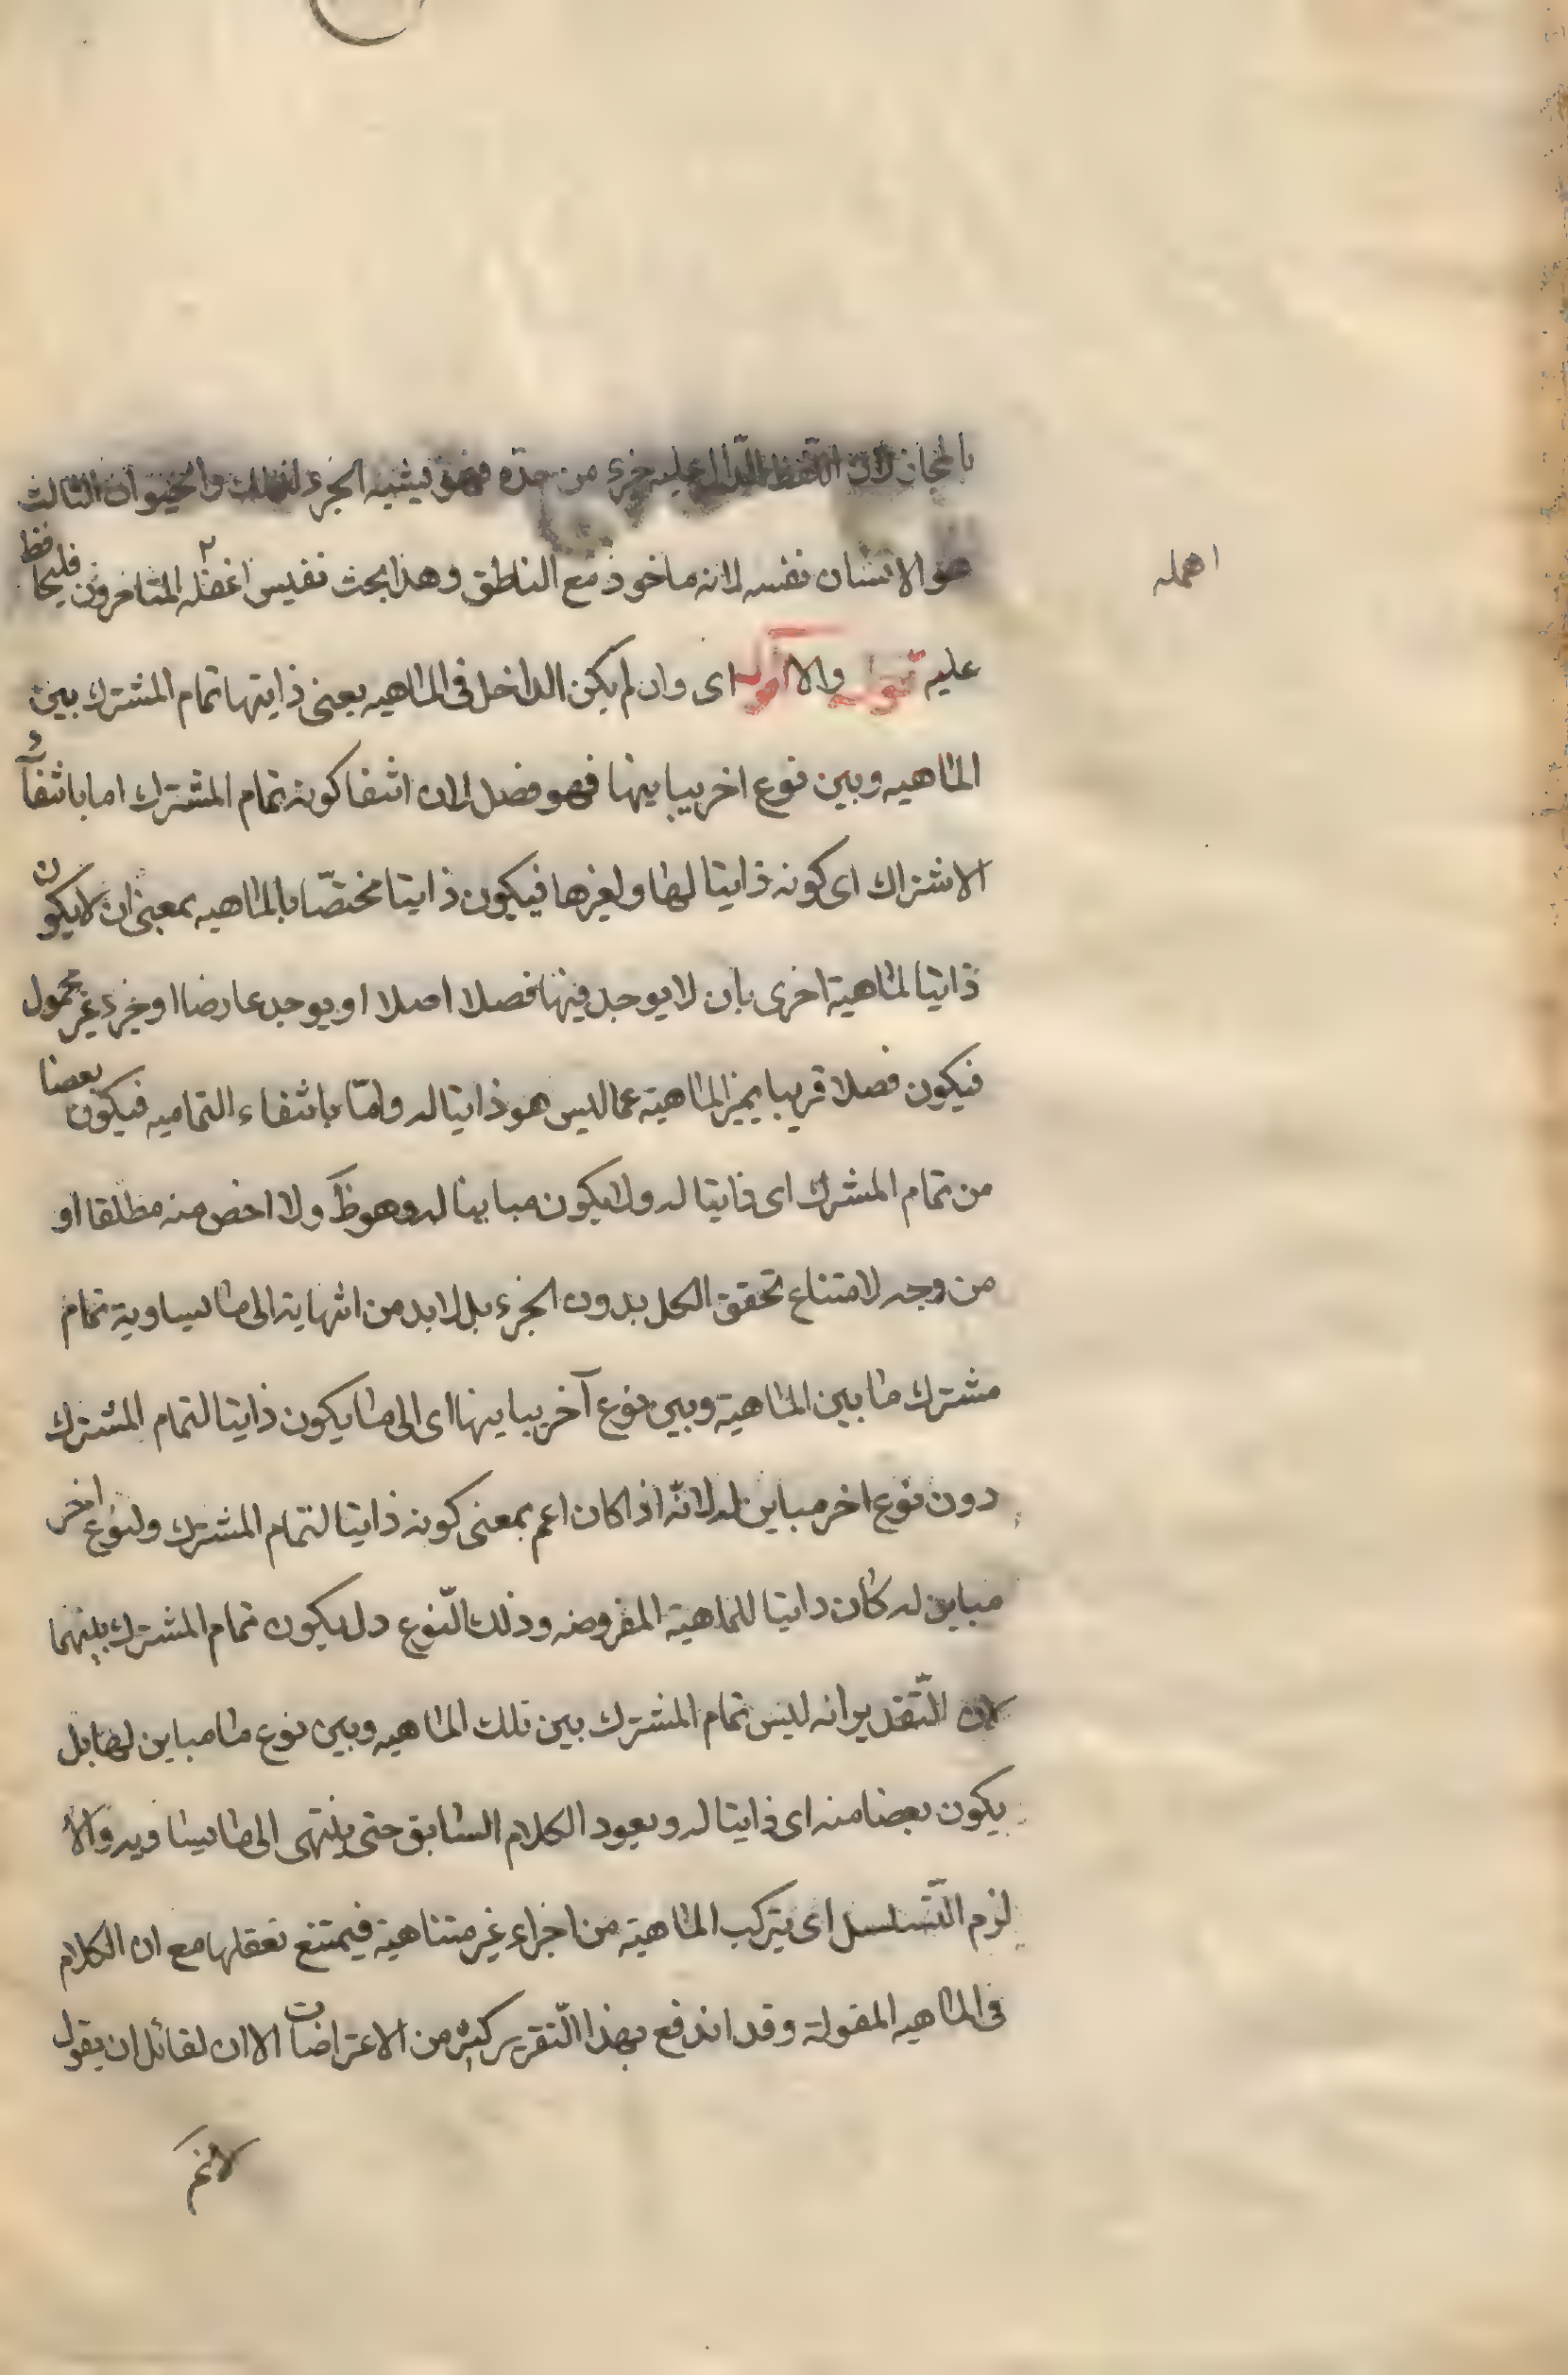 بالمجاز لان اللفظ الدال عليه جزء من حده فهو يشبه الجزء لذلك والحيوان الثالث
هو الانسان نفسه لانه ماخوذ مع الناطق وهذا بحث نفيس اغفله المتاخرون فليحافظ
اهمله
عليه قوله والا اقول اى وان لم يكن الداخل فى الماهيه يعنى ذايتها تمام المشترك بين
الماهيه وبين نوع اخر يباينها فهو فصل لان انتفا كونه تمام المشترك اما بانتفآء
الاشتراك اى كونه ذايتا لها ولغيرها فيكون ذايتا مختصّا بالماهيه بمعنى ان لا يكون
ذايتا لماهية اخرى بان لا يوجد فيها فصلا اصلا او يوجد عارضا او جزء غير محمول
فيكون فصلا قريبا يميز الماهية عما ليس هو ذايتا له وامّا بانتفاء التماميه فيكون بعضا
من تمام المشترك اى ذايتا له ولا يكون مباينا له وهو ظَ ولا اخص منه مطلقا او
من وجه لامتناع تحقق الكل بدون الجزء بل لا بد من انتهايه الى ما يساويه تمام
مشترك ما بين الماهية وبين نوع آخر يباينها اى الى ما يكون ذايتا لتمام المشترك
دون نوع اخر مباين له لانّه اذا كان اعم بمعنى كونه ذايتا لتمام المشترك ولنوع اخر
مباين له كان ذايتا للماهية المفروضه وذلك النّوع ولا يكون تمام المشترك بينهما
لان التّقدير انه ليس تمام المشترك بين تلك الماهيه وبين نوع ما مباين لها بل
يكون بعضا منه اى ذايتا له ويعود الكلام السابق حتى ينتهى الى ما يساويه والا
لزم التّسلسل اى يتركب الماهية من اجزاء غير متناهية فيمتنع تعقلها مع ان الكلام
فى الماهيه المقولة وقد اندفع بهذا التّقرير كثير من الاعتراضات الا ان لقائل ان يقول
لا نم